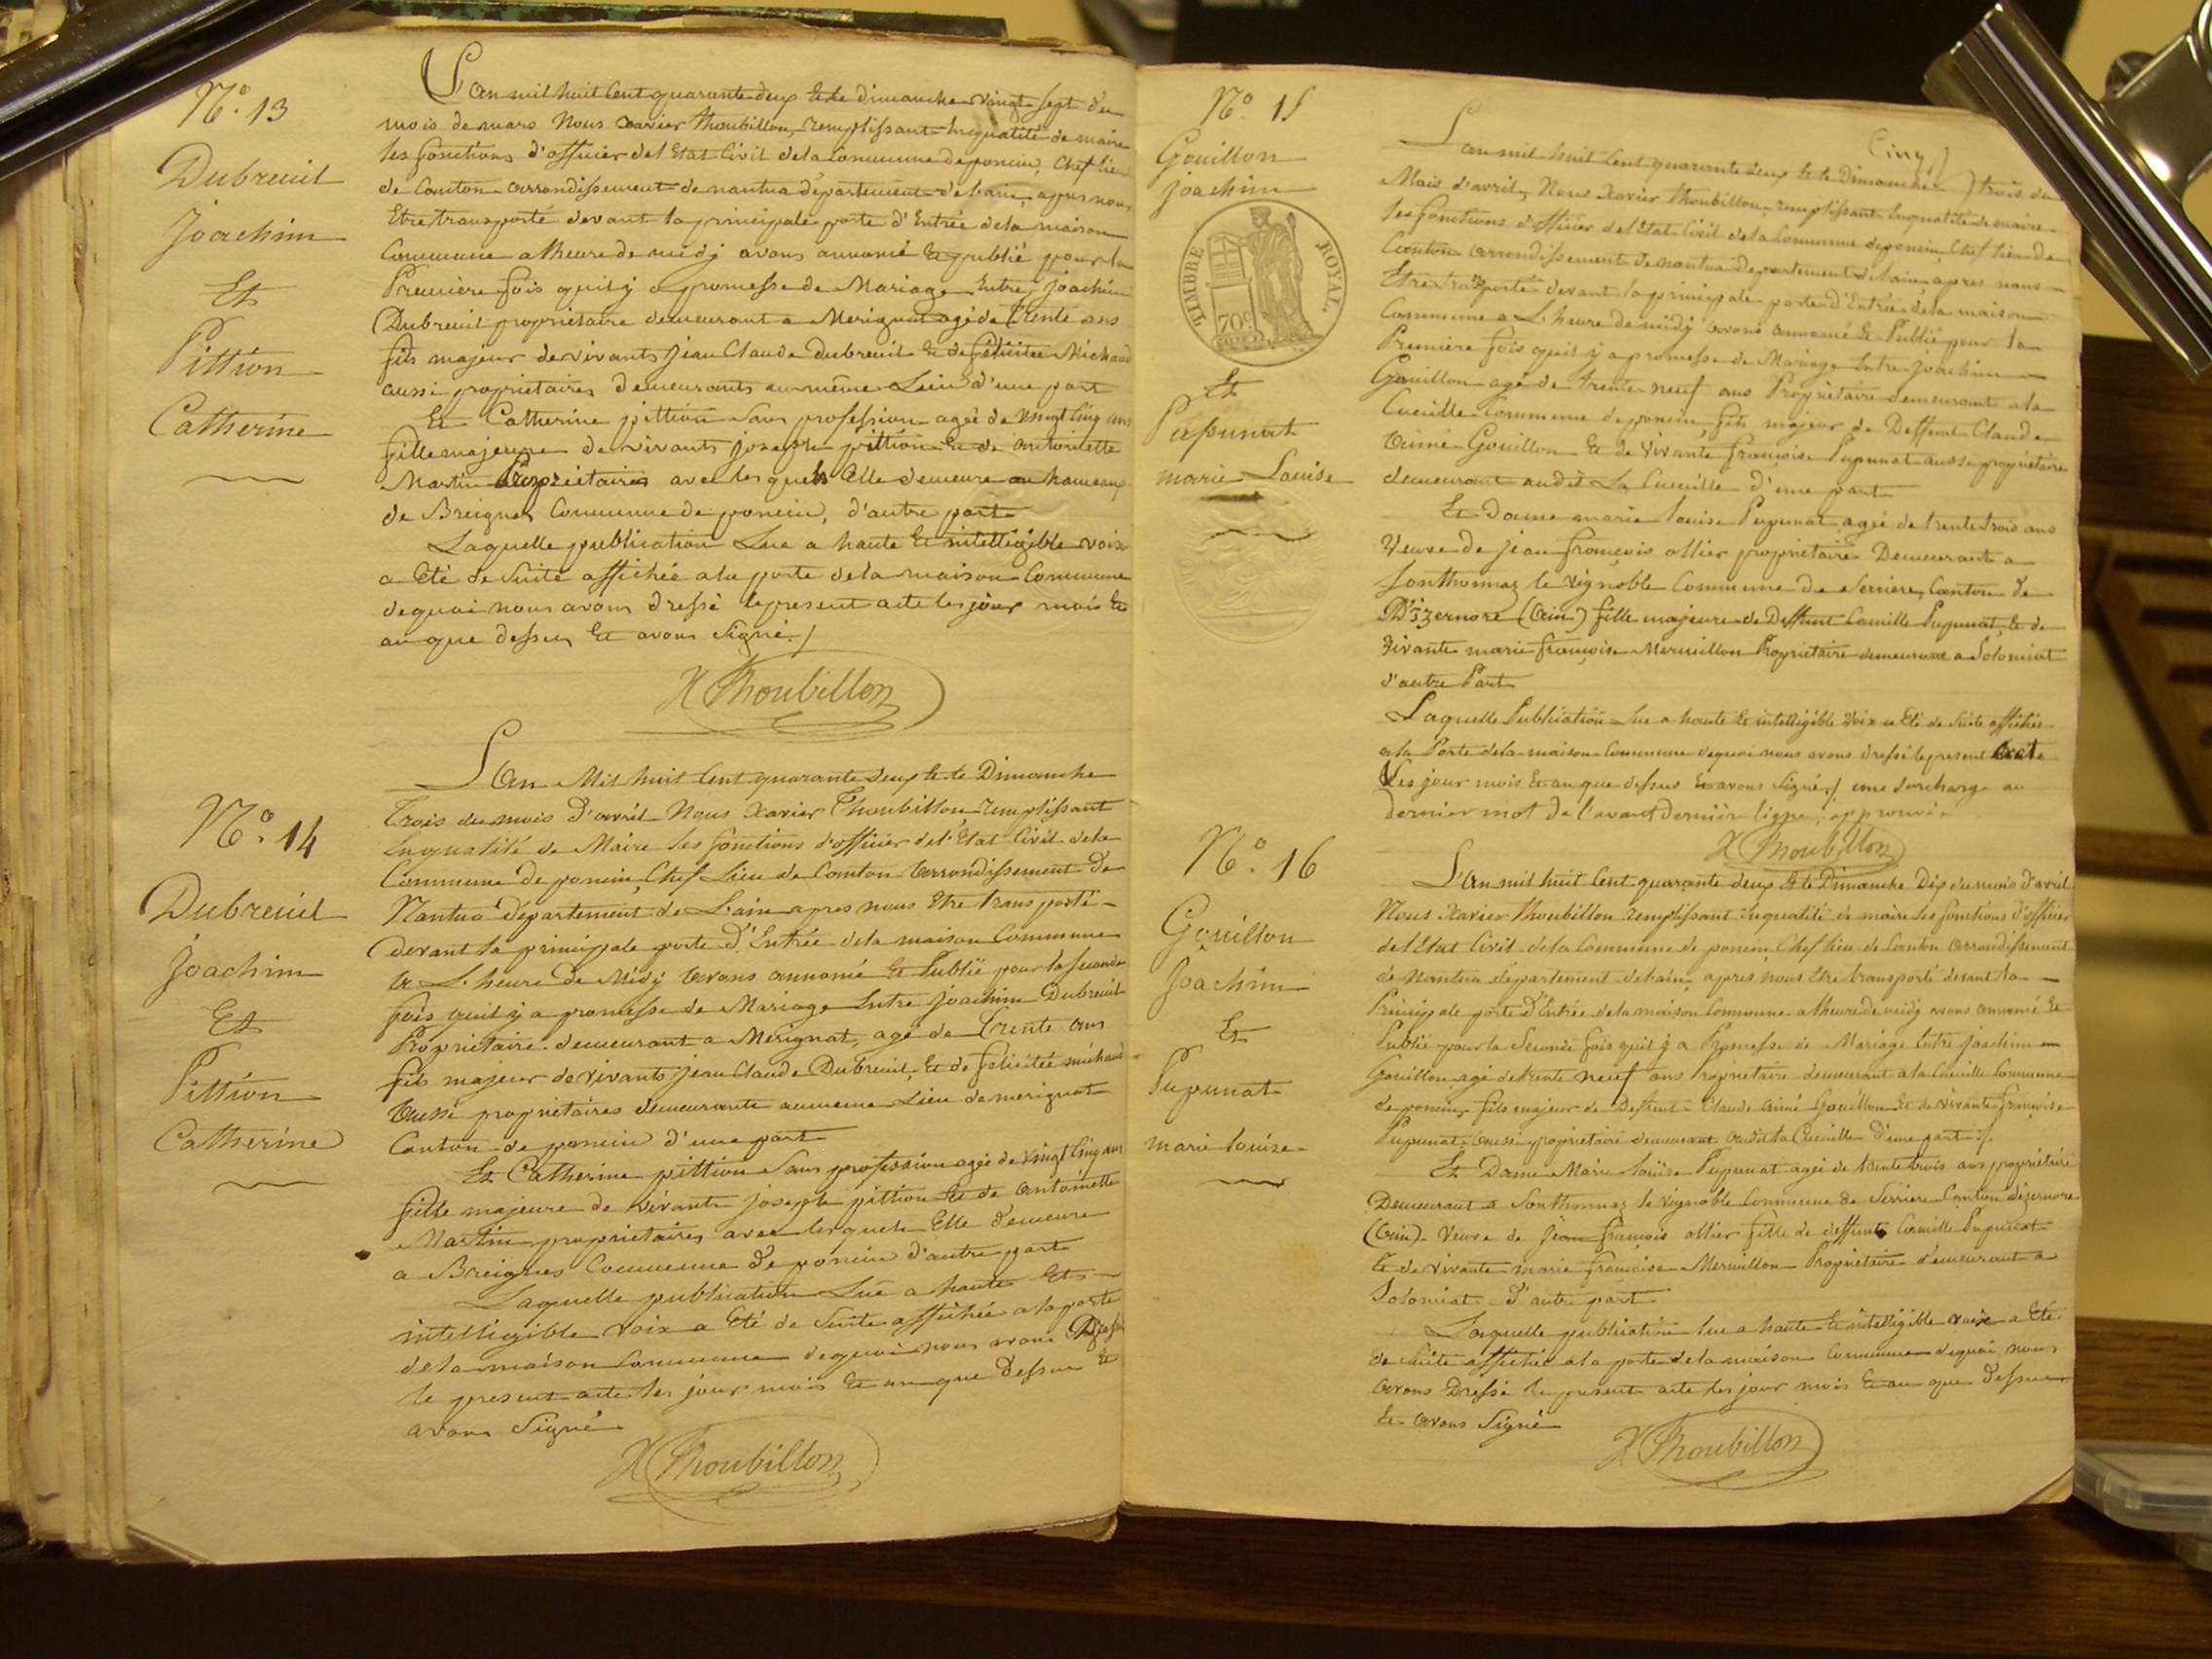 N.° 13
Dubreuil
Joachim
Et
Pittion
Catherine
L'an mil huit cent quarante deux Et le dimanche vingt sept du
mois de mars Nous xavier thoubillon, remplissant En qualité de maire
les fonctions d'officier del'Etat Civil dela Commune deponcin, Chef lieu
de Canton arrondissement de nantua département del'ain, apres nous
Etre transporté devant la principale porte d'Entrée dela maison
Commune a l'heure de midj avons annoncé Et publié pour la
Premiere fois quil ÿ a promesse de Mariage Entre joachim
Dubreuil propriétaire demeurant a Merignat agé de trente ans
fils majeur de vivants jean Claude dubreuil Et de félicitée Michaud
aussi propriétaires demeurants au même Lieu d'une part
Et Catherine pittion Sans profession agée de vingt Cinq ans
fille majeure de vivants joseph pittion Et de antoinette
Martin Propriétaires avec les quels Elle demeure au hameau
de Breignes Commune de poncin, d'autre part
Laquelle publication Lue a haute Et intelligible voix
a Eté de Suite affichée a la porte dela maison Commune
de quoi nous avons dressé le present acte les jour mois Et
an que dessus Et avons Signé./
X Thoubillon
N.° 14
Dubreuil
Joachim
Et
Pittion
Catherine
L'An Mil huit Cent quarante deux Et le Dimanche
Trois du mois d'avril Nous Xavier Thoubillon remplissant
En qualité de Maire les fonctions d'officier del'Etat Civil dela
Commune De poncin, Chef Lieu de Canton Arrondissement de
Nantua département de L'ain apres nous Etre transporté
devant la principale porte d'Entrée dela maison Commune
a L'heure de Midj Avons annoncé Et Publié pour la seconde
fois quil ÿ a promesse de Mariage Entre joachim Dubreuil
Propriétaire demeurant a Mérignat, agé de Trente ans
fils majeur de vivants jean Claude Dubreuil, Et de félicitée michaud
Aussi propriétaires demeurants au meme Lieu de merignat
Canton de poncin d'une part
Et Catherine pittion Sans profession agée de vingt Cinq ans
fille majeure de vivants joseph pittion Et de Antoinette
Martin propriétaires avec lesquels Elle demeure
a Breignes Commune de poncin d'autre part
Laquelle publication Lue a haute Et
intelligible voix a Eté de Suite affichée a la porte
dela maison Commune de quoi nous avons Dressé
le present acte les jour mois Et an que Dessus Et
avons Signé
X Thoubillon
N.° 15
Gouillon
joachim
TIMBRE ROYAL.
70c
Et
Pupunat
marie Louise
(Cinq)
L'an mil huit Cent quarante deux Et le Dimanche trois du
Mois d'avril, Nous Xavier thoubillon remplissant En qualité de maire
les fonctions d'officier del'Etat Civil dela Commune deponcin, Chef lieu de
Canton arrondissement de nantua département del'ain apres nous
Etre transporté devant la principale porte d'Entrée dela maison
Commune a L'heure de midj avons annoncé Et Publié pour la
Premiere fois quil ÿ a promesse de Mariage Entre joachim
Gouillon agé de trente neuf ans Propriétaire demeurant a la
Cueille Commune de poncin, fils majeur de Deffunt Claude
Aimé Gouillon Et de vivante françoise Pupunat aussi propriétaire
demeurant audit La Cueille d'une part
Et Dame marie louise Pupunat agée de trente trois ans
Veuve de jean françois ollier propriétaire Demeurant a
Sonthonnaz le vignoble Commune de Serriere, Canton de
D'izernore (Ain) fille majeure de Deffunt Camille Pupunat, Et de
vivante marie françoise Mermillon Propriétaire demeurant a Solomiat
d'autre Part
Laquelle Publication lue a haute Et intelligible voix a Eté de Suite affichée
a la Porte dela maison Commune dequoi nous avons dressé le present Acte
Les jour mois Et an que dessus Et avons Signé./ une Surcharge au
dernier mot de l'avant derniere ligne, approuvée
X Thoubillon
N.° 16
Gouillon
Joachim
Et
Pupunat
marie louise
L'An mil huit Cent quarante deux Et le Dimanche Dix du mois d'avril
Nous Xavier thoubillon remplissant En qualité de maire les fonctions d'officier
de l'Etat Civil dela Commune de poncin, Chef lieu de Canton arrondissement
de Nantua département del'ain, apres nous Etre transporté devant la
Principale porte d'Entrée dela maison Commune a l'heure de midj avons annoncé Et
Publié pour la Seconde fois quil ÿ a Promesse de Mariage Entre joachim
Gouillon agé de trente neuf ans Propriétaire demeurant a la Cueille Commune
de poncin, fils majeur de Deffunt Claude Aimé Gouillon Et de vivante françoise
Pupunat, aussi propriétaire demeurant audit la Cueille d'une part ./.
Et Dame Marie louise Pupunat agée de trente trois ans propriétaire
Demeurant a Sonthonnaz le vignoble Commune de Serriere Canton dizernore
(Ain). Veuve de jean françois ollier fille de deffunt Camille Pupunat
Et de vivante marie françoise Mermillon Propriétaire demeurant a
Solomiat. d'autre part.
Laquelle publication lue a haute Et intelligible voix a Eté
de Suite affichée a la porte dela maison Commune dequoi nous
avons Dressé le present acte les jour mois Et an que Dessus
Et avons Signé
X Thoubillon